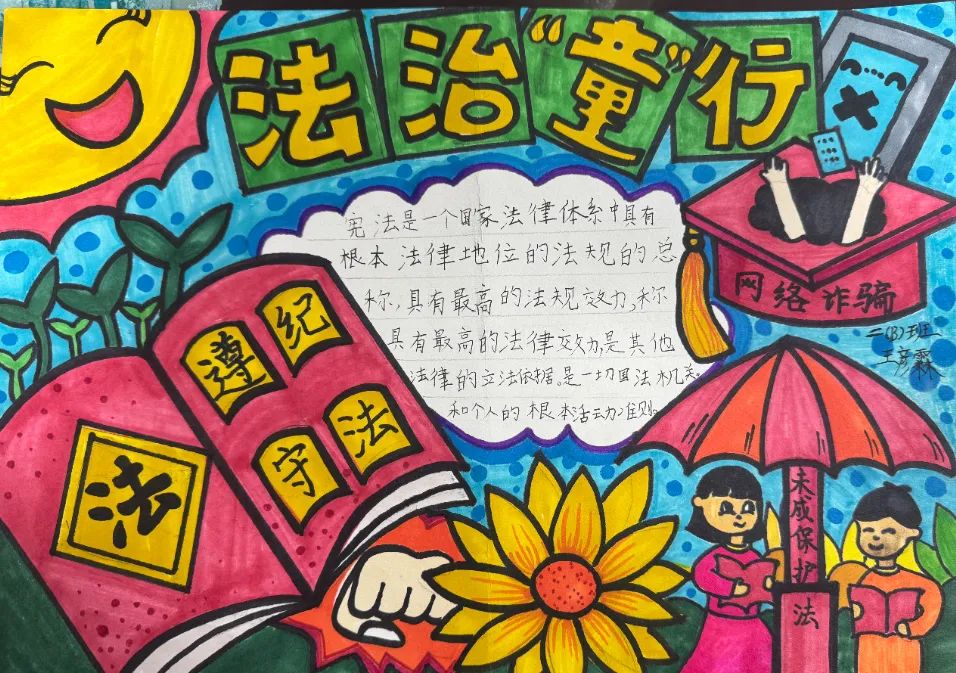 法治“童”行
宪法是一个国家法律体系中具有
根本法律地位的法规的总
称,具有最高的法规效力,称
具有最高的法律效力,是其他
法律的立法依据。是一切国法机关。
和个人的根本活动准则。
网络诈骗
二(8)班
王彦霖
遵纪
守法
法
未成保护
法